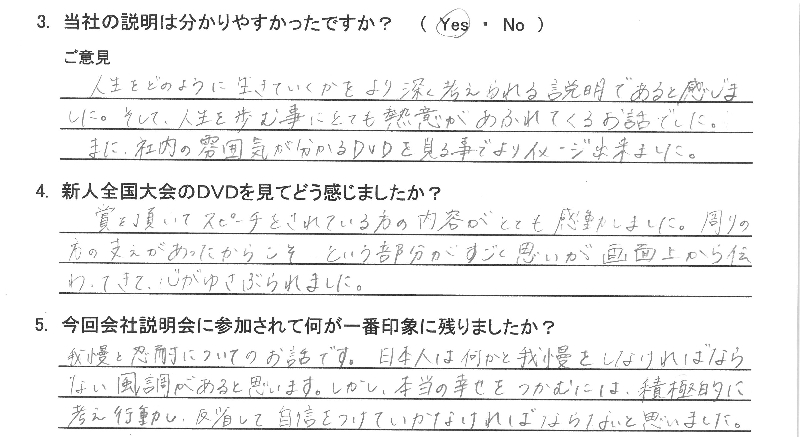 3. 当社の説明は分かりやすかったですか？ （ Yes ・ No ）
ご意見
人生をどのように生きていくかをより深く考えられる説明であると感じま
した。そして、人生を歩む事にとても熱意があふれてくるお話でした。
また、社内の雰囲気が分かるDVDを見る事でよりイメージ出来ました。
4. 新人全国大会のDVDを見てどう感じましたか？
賞を頂いてスピーチをされている方の内容がとても感動しました。周りの
方の支えがあったからこそ という部分がすごく思いが画面上から伝
わってきて、心がゆさぶられました。
5. 今回会社説明会に参加されて何が一番印象に残りましたか？
我慢と忍耐についてのお話です。日本人は何かと我慢をしなければなら
ない風調があると思います。しかし、本当の幸せをつかむには、積極的に
考え行動し、反省して自信をつけていかなければならないと思いました。